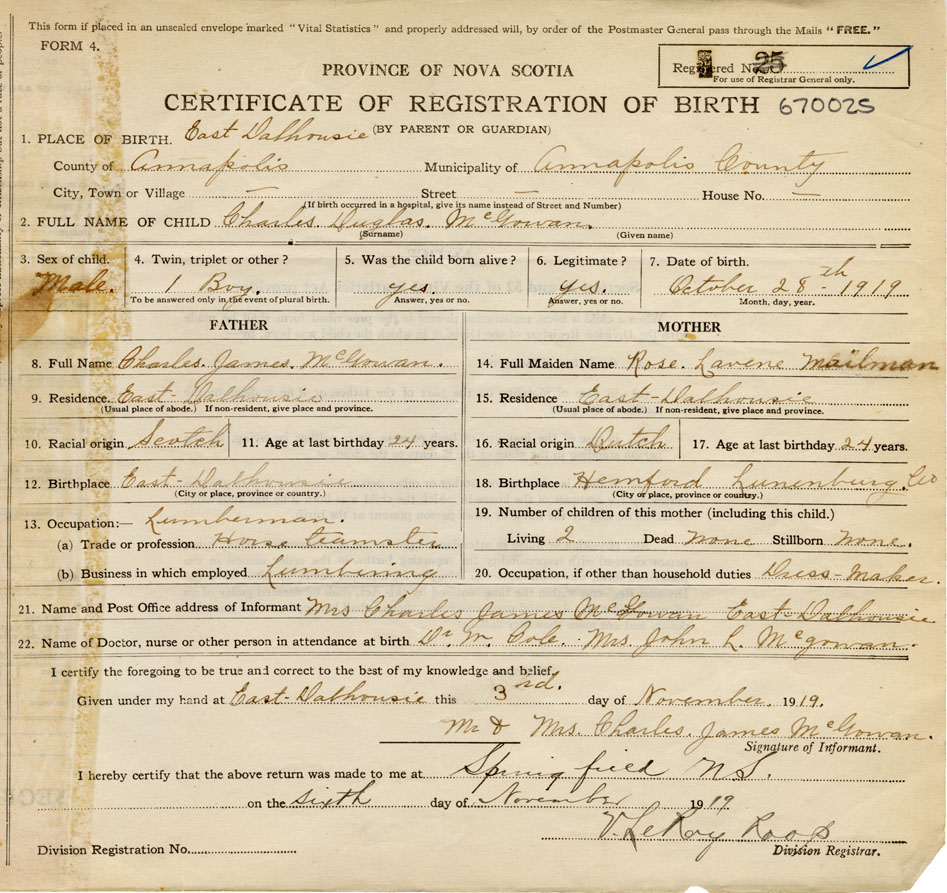 This form if placed in an unsealed envelope marked "Vital Statistics" and properly addressed will, by order of the Postmaster General pass through the Mails "FREE."
FORM 4.
Registered No. 25
For use of Registrar General only.
PROVINCE OF NOVA SCOTIA
CERTIFICATE OF REGISTRATION OF BIRTH 670025
(BY PARENT OR GUARDIAN)
1. PLACE OF BIRTH. East Dalhousie
County of Annapolis Municipality of Annapolis County
City, Town or Village — Street — House No. —
(If birth occurred in a hospital, give its name instead of Street and Number)
2. FULL NAME OF CHILD Charles Duglas. McGowan.
(Surname) (Given name)
3. Sex of child. 4. Twin, triplet or other? 5. Was the child born alive? 6. Legitimate? 7. Date of birth.
Male. 1 Boy. yes. yes. October 28th - 1919
To be answered only in the event of plural birth. Answer, yes or no. Answer, yes or no. Month, day, year.
FATHER MOTHER
8. Full Name Charles. James. McGowan. 14. Full Maiden Name Rose. Lavene Mailman
9. Residence. East-Dalhousie 15. Residence East-Dalhousie
(Usual place of abode.) If non-resident, give place and province. (Usual place of abode.) If non-resident, give place and province.
10. Racial origin Scotch 11. Age at last birthday 24 years. 16. Racial origin Dutch 17. Age at last birthday 24 years.
12. Birthplace East-Dalhousie 18. Birthplace Hemford Lunenburg. Co
(City or place, province or country.) (City or place, province or country.)
13. Occupation:— Lumberman. 19. Number of children of this mother (including this child.)
(a) Trade or profession Horse teamster Living 2 Dead None Stillborn None.
(b) Business in which employed Lumbering 20. Occupation, if other than household duties Dress-Maker.
21. Name and Post Office address of Informant Mrs Charles James McGowan East-Dalhousie
22. Name of Doctor, nurse or other person in attendance at birth Dr. W. Cole. Mrs. John L. McGowan.
I certify the foregoing to be true and correct to the best of my knowledge and belief.
Given under my hand at East-Dalhousie this 3rd. day of November 1919.
Mr & Mrs. Charles. James McGowan.
Signature of Informant.
I hereby certify that the above return was made to me at Springfield N.S.
on the sixth day of November 1919
V. LeRoy Roop
Division Registrar.
Division Registration No.